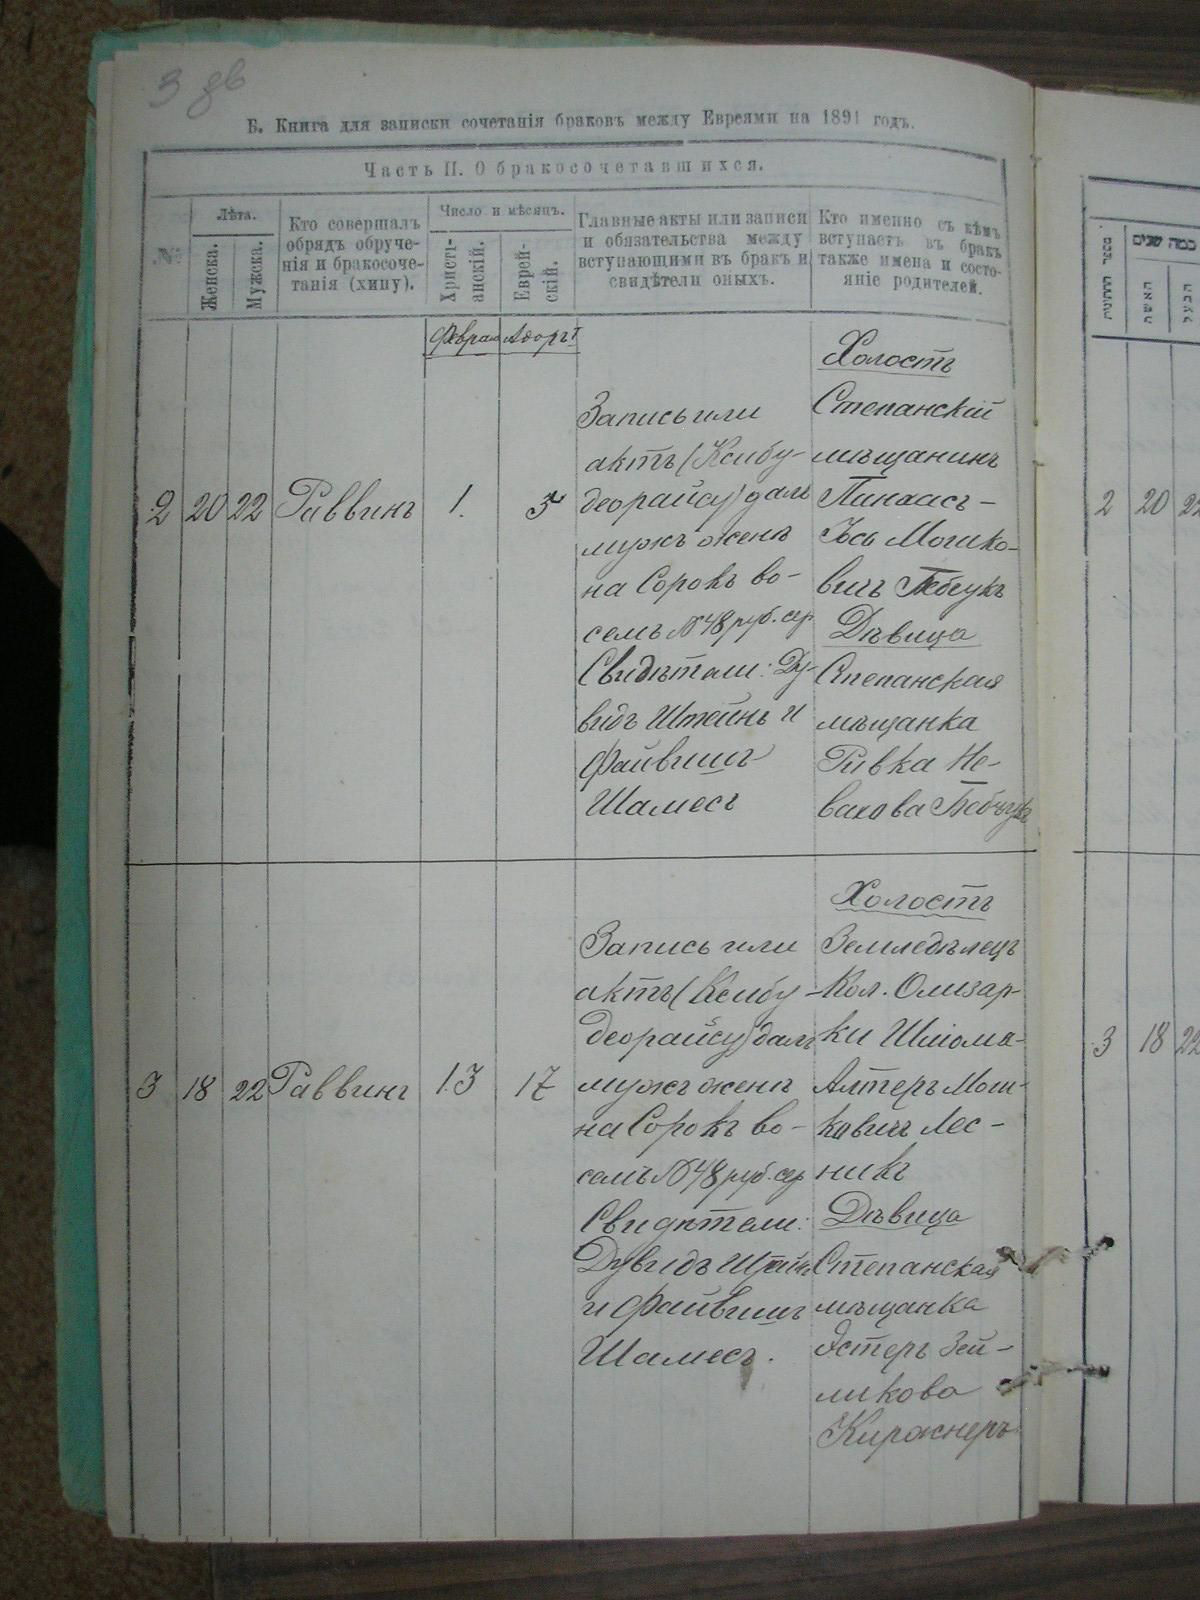 Б. Книга для записки сочетанія браковъ между Евреями на 1891 годъ.
Часть II. О бракосочетавшихся.
№
Лѣта.
Женска.
Мужска.
Кто совершалъ
обрядъ обруче-
нія и бракосоче-
танія (хипу).
Число и мѣсяцъ.
Христі-
анскій.
Еврей-
скій.
Главные акты или записи
и обязательства между
вступающими въ бракъ и
свидѣтели оныхъ.
Кто именно съ кѣмъ
вступаетъ въ бракъ
также имена и состо-
яніе родителей.
2 20 22 Раввинъ 1. 5
Запись или
актъ (Ксибу-
деорайсу) далъ
мужъ женѣ
на Сорокъ во-
семь № 48 руб. сер
Свидѣтели: Ду-
видъ Штейнъ и
Файвишъ
Шамесъ
Холостъ
Степанскій
мѣщанинъ
Пинхасъ-
Іось Мошко-
вичъ
Дѣвица
Степанская
мѣщанка
Ривка
3 18 22 Раввинъ 13 17
Запись или
актъ (Ксибу-
деорайсу) далъ
мужъ женѣ
на Сорокъ во-
семь № 48 руб. сер
Свидѣтели:
Дувидъ Штейнъ
и Файвишъ
Шамесъ.
Холостъ
Земледѣлецъ
Кол. Олизар-
ки Шліома-
Алтеръ Мош-
ковичъ Лес-
никъ
Дѣвица
Степанская
мѣщанка
Эстеръ Зей-
ликова
Киржнеръ
כמה שנים
האשה
הבעל
2 20 22
3 18 22